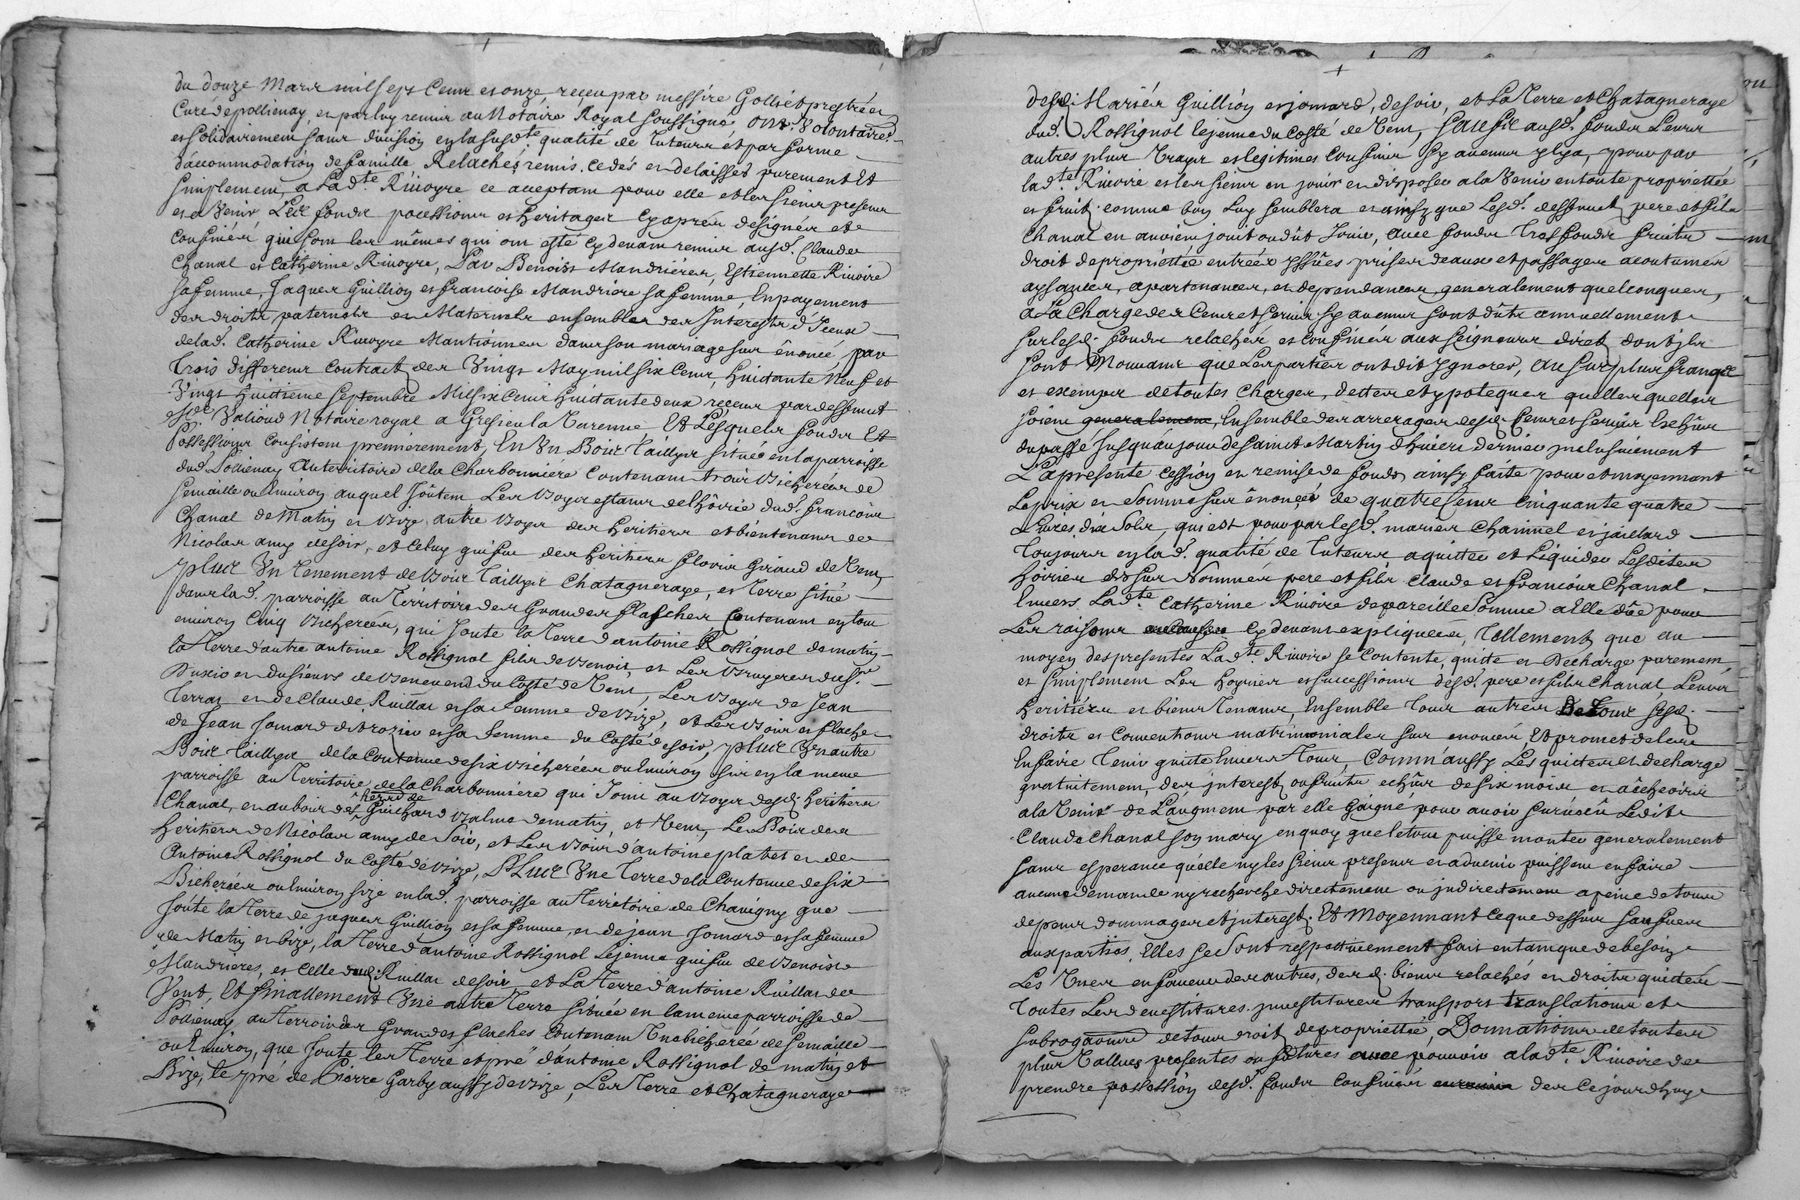 du douze Mars mil sept Cent et onze reçeu par messire Golliet prestre et
Curé de pollienay, et par luy remis au Notaire Royal soussigné, Ont Volontaires
et solidairement sans division en la susdte qualité de tuteurs et par forme
daccommodation de famille Relachés, remis, cedés et delaissés purement Et
simplement, a Ladte Rivoyre ce acceptant pour elle et les siens presens
et a Venir Les fonds pocessions et heritages Cy aprés designés et
Confinés qui sont les mêmes qui ont esté cy devant remis ausd. Claude
Chanal et Catherine Rivoyre, Par Benoist Mandriéres, Estiennette Rivoire
sa femme, Jaques Guillion et francoise Mandriere sa femme, En payement
des droits paternels et Maternels ensembles des Interests d'Iceux
delad. Catherine Rivoyre Mantionnes dans son mariage sus énoncé, par
trois differens Contract des Vingt May mil six Cent, huictante Neuf et
Vingt huitieme septembre Mil six Cent huictante deux receus par dessunct
Me Valioud Notaire royal a Gresieu la Varenne Et Lesquels fonds Et
Possessions Consistent premierement, En Un Bois taillyx situé en la parroisse
dud. Pollienay Au territoire de la Charbonniere Contenant trois Bicherées de
semaille ou Environ auquel Joûtent Les Boys estans de l'hôirie dud. françois
Chanal de Matin et Bize, autre Boys des heritiers et bientenans de
Nicolas amy de soir, et Celuy qui fut des heritiers flovis Giraud de Vent,
plus Un tenement de Bois taillyx Chatagneraye, et terre situé
dans lad. parroisse au Territoire des Grandes flaches Contenant en tout
environ Cinq Bicherées, qui Joute la Terre d'antoine Rossignol de matin,
la Terre d'autre antoine Rossignol fils de Benoit, et Les Bruyeres du Sr
Duxio et du sieurs de Benevend du Costé de Vent, Les Boys de Jean
Terras et de Claude Ruillat et sa femme de Bize, et Les Bois et flache
de Jean Jomard de Brozieu et sa femme du Costé de soir, plus Un autre
Bois taillyx de la Contenue de six Bicherées ou Environ sis en la meme
parroisse au Territoire de la Charbonniere qui Joint au Boys desd. heritiers
Chanal, et au bour des herit. de Guichard Valme de matin, et Vent, Le Bois des
heritiers de Nicolas amy de Soir, et Les Bois d'antoine plabet et de
Antoine Rossignol du Costé de Bize, Plus Une Terre de la Contenue de six
Bicherées ou Environ size en lad. parroisse au Territoire de Chavigny que
Joûte la terre de jaques Guillion et sa femme, et de jean Jomard et sa femme
de Matin et bize, la Terre d'antoine Rossignol Lejenne qui fut de Benoist
Mandrieres, et Celle dud. Ruillat de soir et La Terre d'antoine Ruillat de
Vent, Et finallement Une autre Terre située en la meme parroisse de
Pollienay au terroir des Grandes flaches Contenant Une bicherée de semaille
ou Environ, que Joute les Terre et pré d'antoine Rossignol de matin et
Bize, le pré de Pierre Garby aussy de Bize, Les Terre et Chatagneraye
desd. Mariés Guillion et jomard, de soir, et La Terre et Chatagneraye
dud. Rossignol le jenne du Costé de Vent, Sauf ausd. fonds Leurs
autres plus Vrays et legitimes Confins sy aucuns y en a, pour par
ladte Rivoire et les siens en jouir et disposer a la Venir en toute proprieté
et fruit comme bon Luy semblera et ainsy que Lesd. deffunct pere et fils
Chanal en avoient jouit ou dût Jouir, Avec fonds Tresfonds fruits
droit de proprietté entrées yssües, prises deaux et passages acoutumés
aysances, apartenances, et dependances generalement quelconques,
A La Charge des Cens et servis sy aucuns sont dûts annuellement
sur lesd. fonds relachés et confinés aux seigneurs direct dont jls
sont Mouvans que Les parties ont dit Ignorer, Au surplus franqs
et exempt de toutes Charges, dettes et ypoteques quelles quelles
soient generalement, Ensemble des arrerages desd. Cens et servis Eschus
du passé Jusqu'au jour de saint Martin d'hivert dernier jnclusivement
La presente Cession et remise de fonds ainsy faite pour et moyennant
Le prix et Somme sus énoncé de quatre Cent Cinquante quatre
Livres dix Sols, qui est pour par lesd. mariés Chainnel et jaillard
toujours en lad. qualité de tuteurs aquitter et Liquider Lesdites
hoiries des sus Nommés pere et fils Claude et francois Chanal
Envers Ladte Catherine Rivoire de pareille Somme a Elle düe pour
Les raisons cy devant expliquées, tellement que au
moyen des presentes Ladte Rivoire se Contente, quitte et Decharge purement
et simplement Les hoyries et successions desd. pere et fils Chanal, Leurs
heritiers et biens tenans, Ensemble tous autres De tous sesd.
droits et Conventions matrimoniales sus enoncés, Et promet de les
En faire Tenir quitte Envers tous, Comm'aussy Les quitte et decharge
gratuitement, des jnterest ou fruits echûs de six mois et a échoirs
a la Venir de Laugment par elle Gaigné pour avoir survecû Ledit
Claude Chanal son mary en quoy que le tout puisse monter generalement
sans esperance qu'elle ny les siens presens et advenir puissent en faire
aucune demande ny recherche directement ou jndirectement a peine de tous
depens dommages et jnterest. Et Moyennant Ce que dessus sauf
aux parties, Elles se sont respectivement fait en tant que de besoin
Les Unes en faveur des autres, desd. biens relachés et droits quittés
toutes Les devestitures, jnvestitures transport translations et
subrogations de tous droit de proprietté, Donnations de toutes
plus Vallues presentes ou futures avec pouvoir a ladte Rivoire de
prendre possession desd. fonds Confinés des Ce jourd'huy